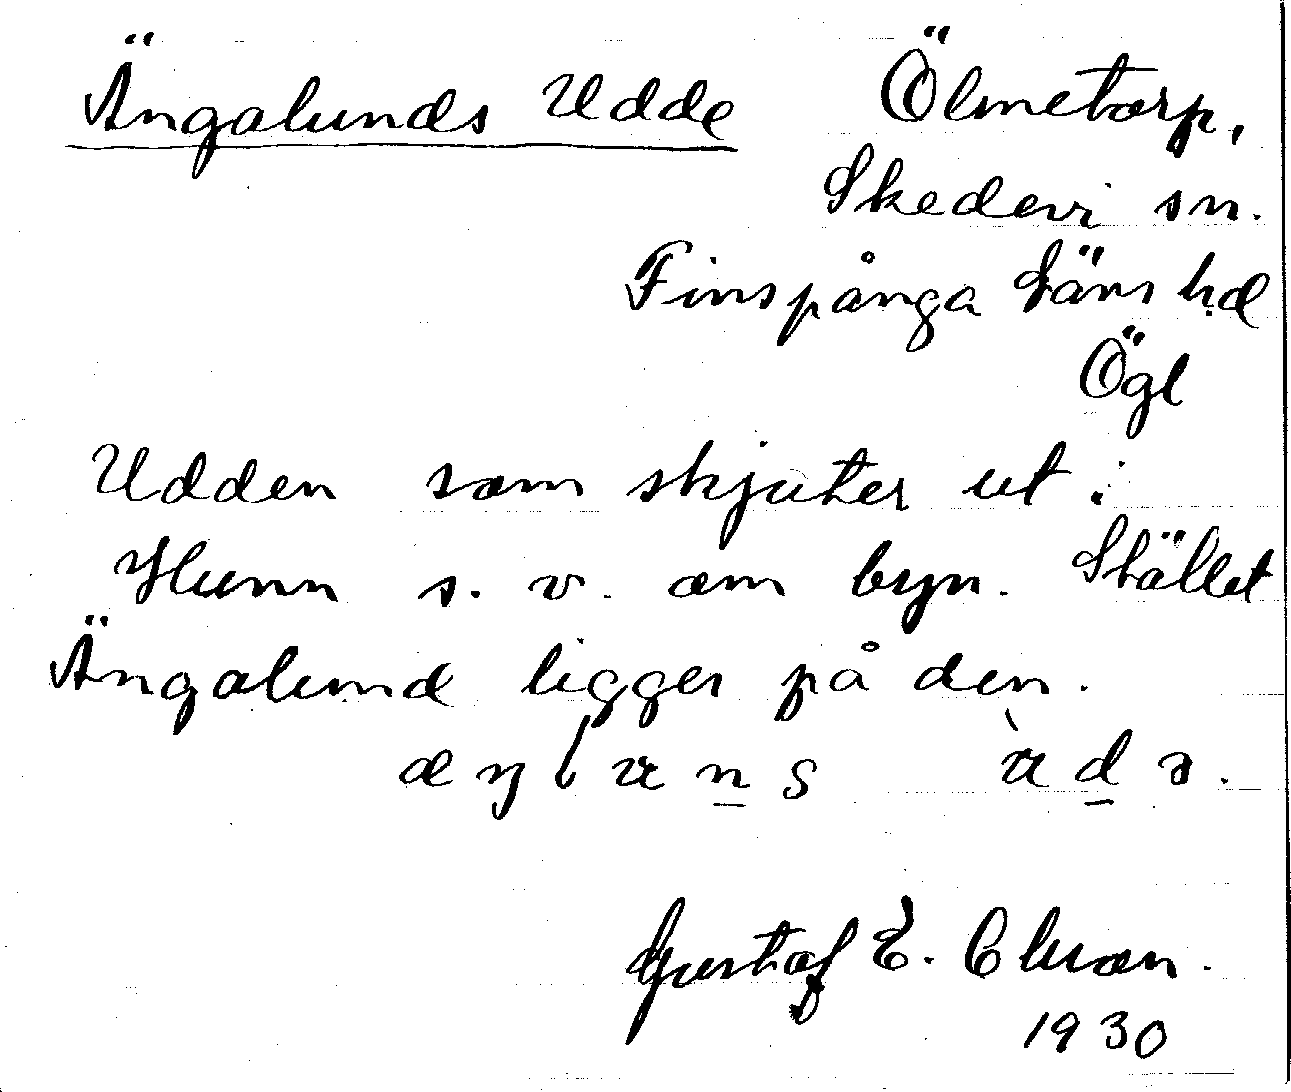 Ängalunds Udde Ölmetorp,
Skedevi sn.
Finspånga Läns hd
Ögl
Udden som skjuter ut i
Hunn s. v. om byn. Stället
Ängalund ligger på den.
Gustaf E. Clevan.
1930